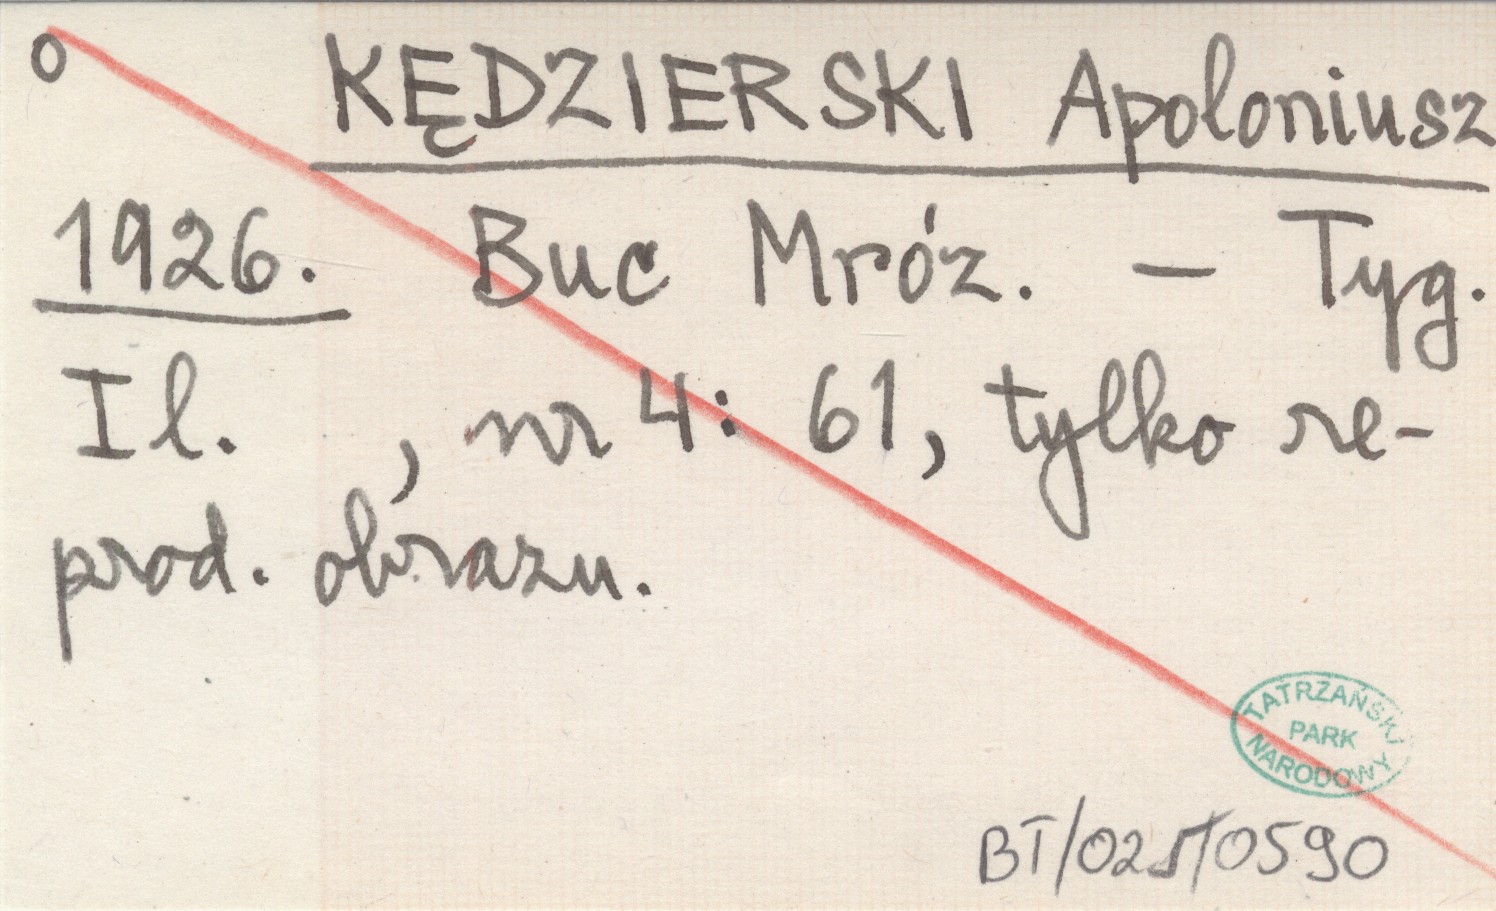 o KĘDZIERSKI Apoloniusz
1926. Buc Mróz. – Tyg.
Il. , nr 4: 61, tylko re-
prod. obrazu.
TATRZAŃSKI
PARK
NARODOWY
BT/025/0590